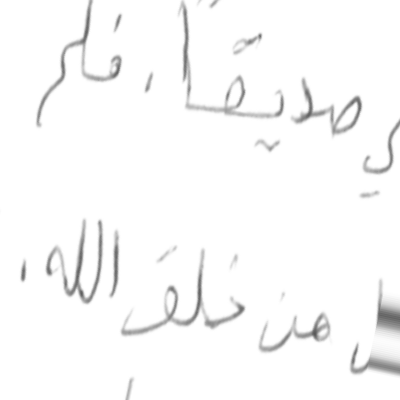 صديقاً، فلم
من خلق الله،